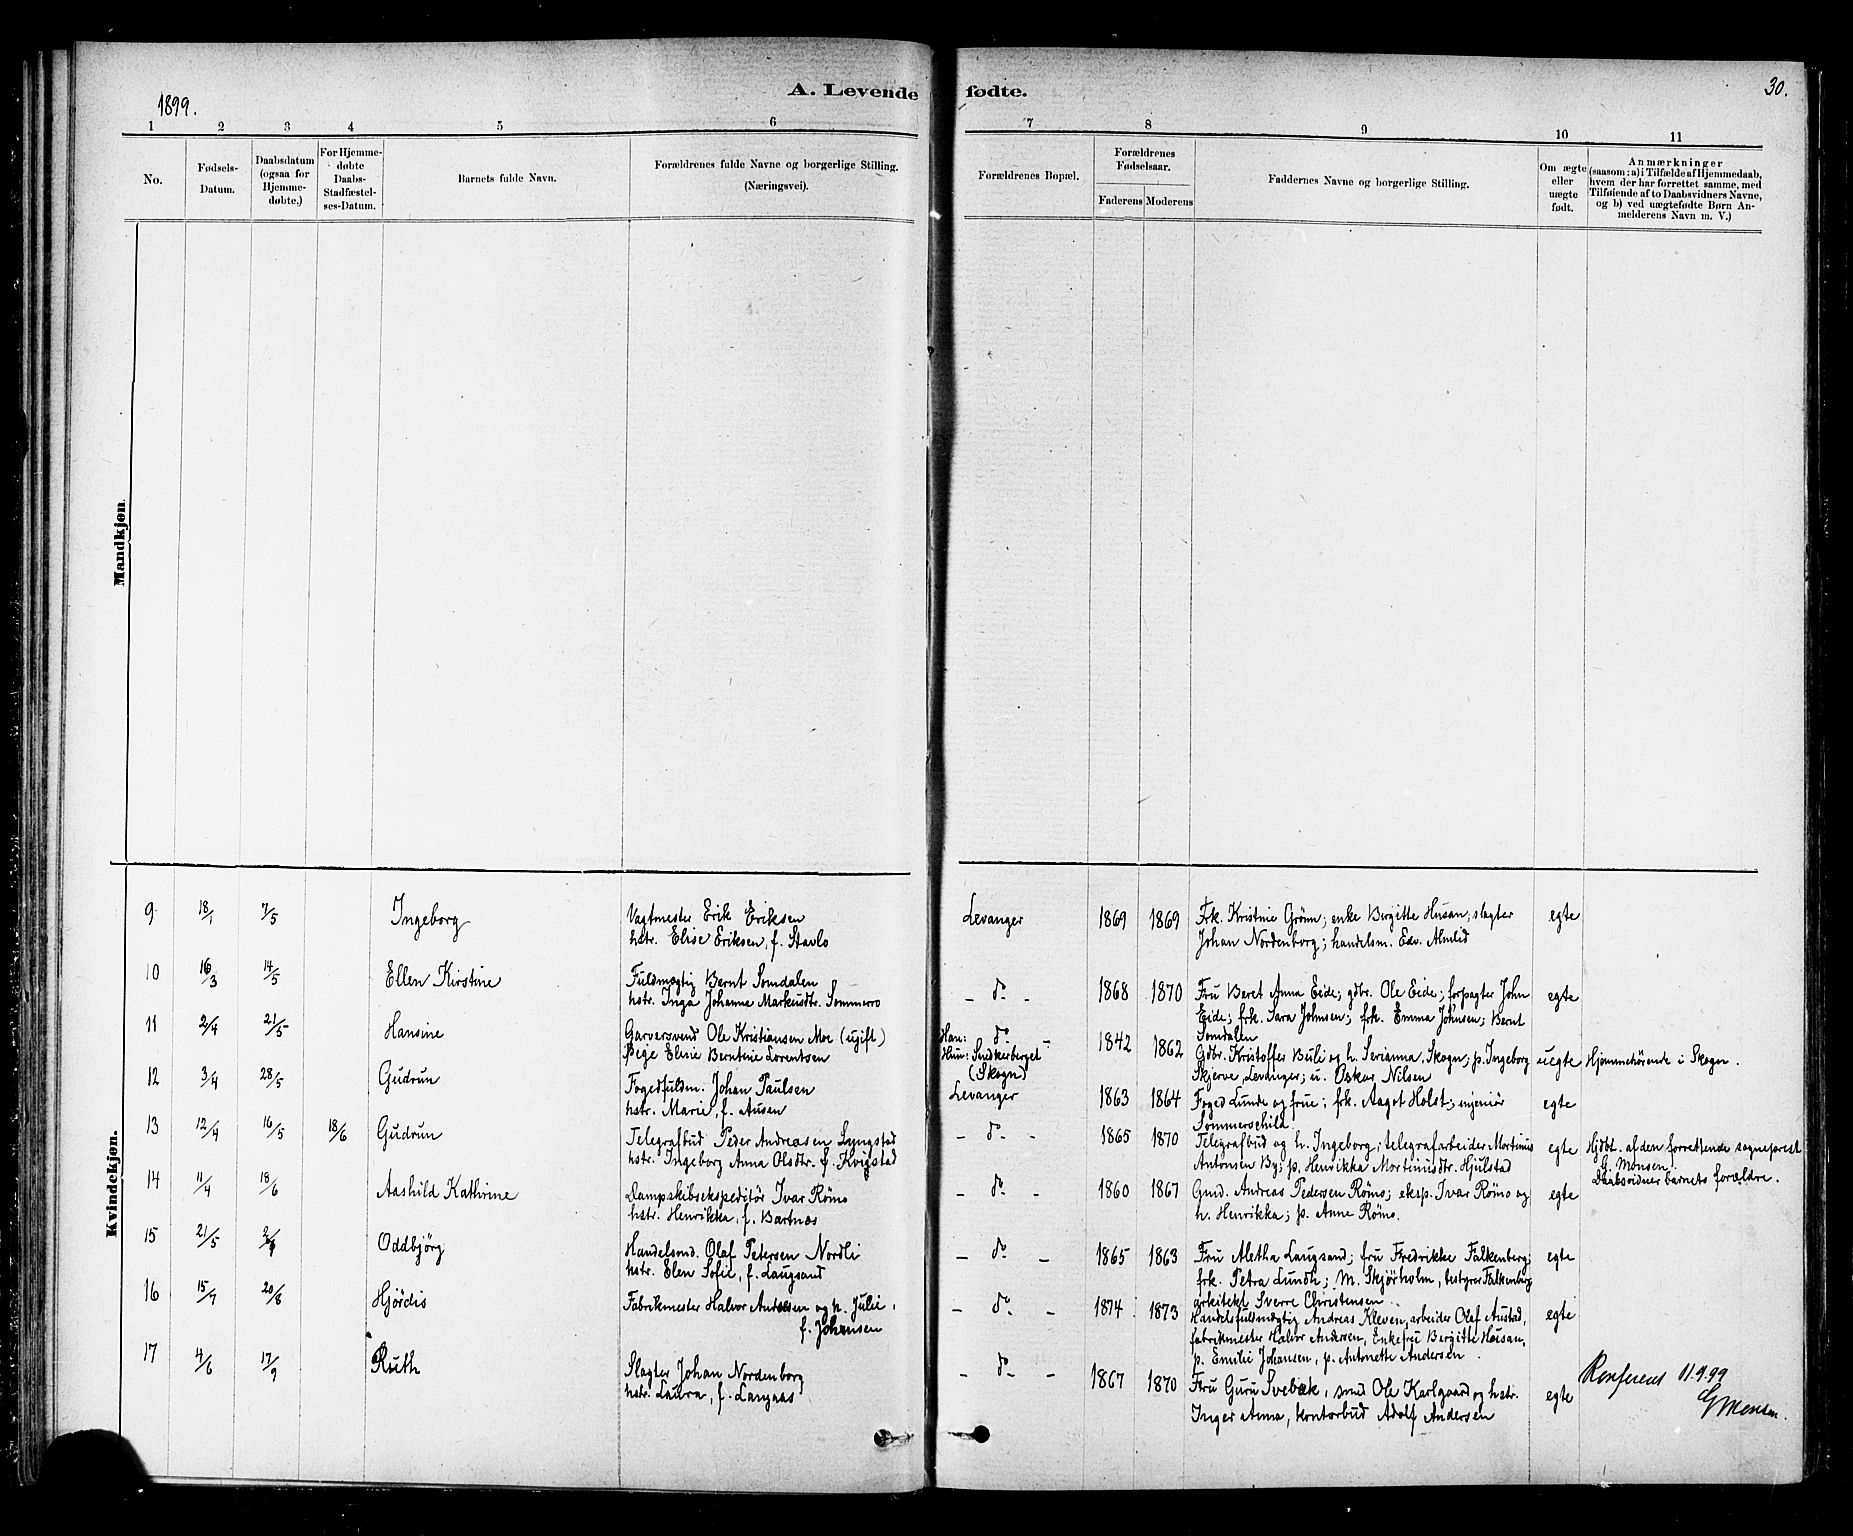 1899.
A. Levende fødte.
30.
1 2 3 4 5 6 7 8 9 10 11
No.
Fødsels-
Datum.
Daabsdatum
(ogsaa for
Hjemme-
døbte.)
For Hjemme-
døbte
Daabs-
Stadfæstel-
ses-Datum.
Barnets fulde Navn.
Forældrenes fulde Navne og borgerlige Stilling.
(Næringsvei).
Forældrenes Bopæl.
Forældrenes
Fødselsaar.
Faderens Moderens
Faddernes Navne og borgerlige Stilling.
Om ægte
eller
uægte
født.
Anmærkninger
(saasom: a) i Tilfælde af Hjemmedaab,
hvem der har forrettet samme, med
Tilføiende af to Daabsvidners Navne,
og b) ved uægtefødte Børn An-
melderens Navn m. V.)
Mandkjøn
Kvindekjøn.
9 18/1 7/5 Ingeborg
Vagtmester Erik Eriksen
hstr. Elise Eriksen, f. Stavlo
Levanger 1869 1869
Frk. Kristine Grönn; enke Bergitte Husan; slagter
Johan Nordenborg; handelsm. Edv. Almlid
egte
10 16/3 14/5 Ellen Kirstine
Fuldmægtig Bernt Somdalen
hstr. Inga Johanne Markusdtr. Sommerro
– do – 1868 1870
Fru Beret Anna Eide; gdbr. Ole Eide; forpagter John
Eide; frk. Sara Johnsen; frk. Emma Johnsen; Bernt
Somdalen
egte
11 2/4 21/5 Hansine
Garversvend Ole Kristiansen Moe (ugift)
Pige Elise Berntine Lorentsen
Han: do –
Hun: Sundkerberget
(Skogn)
1842 1862
Gdbr. Kristoffer Buli og h. Serianna, Skogn; p. Ingeborg
Skjerve, Levanger; u. Oskar Nilsen
uegte
Hjemmehörende i Skogn.
12 3/4 28/5 Gudrun
Fogedfuldm. Johan Paulsen
hstr. Marie, f. Ausen
Levanger 1863 1864
Foged Lunde og frue; frk. Aagot Holst; ingeniör
Sommerschild.
egte
13 12/4 16/5 18/6 Gudrun
Telegrafbud Peder Andreasen Lyngstad
hstr. Ingeborg Anna Olsdtr. f. Kvigstad
– do – 1865 1870
Telegrafbud og h. Ingeborg; telegrafarbeider Mortinus
Antonsen By; p. Henrikka Mortinusdtr. Hjulstad
egte
Hjdbt. af den forrettende sogneprest
G. Monsen.
Daabsvidner barnets forældre.
14 11/4 18/6 Aashild Kathrine
Dampskibsekspeditör Ivar Römo
hstr. Henrikka, f. Bartnæs
– do – 1860 1867
Gmd. Andreas Pedersen Römo; eksp. Ivar Römo og
h. Henrikka; p. Anne Römo.
egte
15 21/5 Oddbjörg
Handelsmd. Olaf Petersen Nordli
hstr. Elen Sofie, f. Laugsand
– do – 1865 1863
Fru Aletha Laugsand; fru Fredrikke Falkenberg;
frk. Petra Lundh; M. Skjörholm, bestyrer Falkenberg
arkitekt Sverre Christensen
egte
16 15/7 20/8 Hjördis
Fabrikmester Halvor Andersen og h. Julie,
f. Johansen
– do – 1874 1873
Handelsfuldmægtig Andreas Kleven, arbeider Olaf Austad,
fabrikmester Halvor Andersen, Enkefru Bergitte Husan,
p. Emilie Johansen, p. Antonette Andersen.
egte
17 4/6 17/9 Ruth
Slagter Johan Nordenborg
hstr. Laura, f. Langaas
– do – 1867 1870
Fru Guru Svebæk, smed Ole Karlgaard og hstr.
Inger Anna, kontorbud Adolf Andersen
egte
Konfereret 11.9.99
G Monsen.